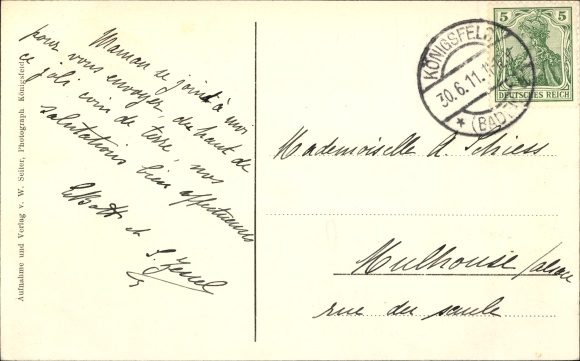 Maman se joint à moi
pour vous envoyer, du haut de
ce joli coin de terre, nos
salutations bien affectueuses
et
Aufnahme und Verlag v. W. Seiler, Photograph Königsfeld
5 5
DEUTSCHES REICH
KÖNIGSFELD
30.6.11.
* (BADEN)
Mademoiselle A. Schiess
Mulhouse /alsace
rue du saule